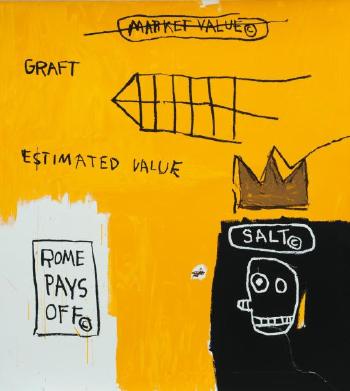 MARKET VALUE©
GRAFT
ESTIMATED VALUE
SALT©
ROME
PAYS
OFF©